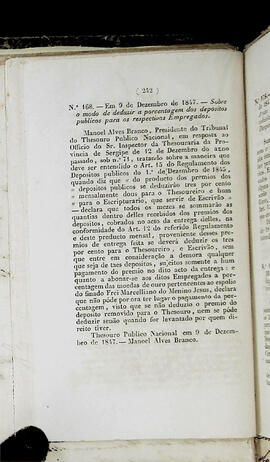 ( 242 )
N.º 168. — Em 9 de Dezembro de 1847. — Sobre
o modo de deduzir a porcentagem dos depositos
publicos para os respectivos Empregados.
Manoel Alves Branco, Presidente do Tribunal
do Thesouro Publico Nacional, em resposta ao
Officio do Sr. Inspector da Thesouraria da Pro-
vincia de Sergipe de 12 de Dezembro do anno
passado, sob n.º 71, tratando sobre a maneira que
deve ser entendido o Art. 15 do Regulamento dos
Depositos publicos do 1.º de Dezembro de 1845,
quando diz que « do producto dos premios dos
» depositos publicos se deduzirão tres por cento
» cada mez para o Thesoureiro e hum
» para o Escripturario, que servir de Escrivão »
— declara que todos os mezes se sommarão as
quantias dentro delles recebidos dos premios dos
depositos, cobrados no acto da entrega delles, na
conformidade do Art. 12 do referido Regulamento
e deste producto mensal, proveniente desses pre-
mios de entrega feita se deverá deduzir os tres
por cento para o Thesoureiro, e Escrivão, sem
que entre em consideração a demora qualquer
que seja de taes depositos, sujeitos somente a hum
pagamento do premio no dito acto da entrega: e
quanto a abonar-se aos ditos Empregados a per-
centagem das moedas de ouro pertencentes ao espolio
do finado Frei Marcelliano do Menino Jesus, declara
que não póde por ora ter lugar o pagamento da per-
centagem, visto que se não deduzio o premio do
deposito removido para o Thesouro, nem se póde
deduzir senão quando for levantado por quem di-
reito tiver.
Thesouro Publico Nacional em 9 de Dezem-
bro de 1847. — Manoel Alves Branco.